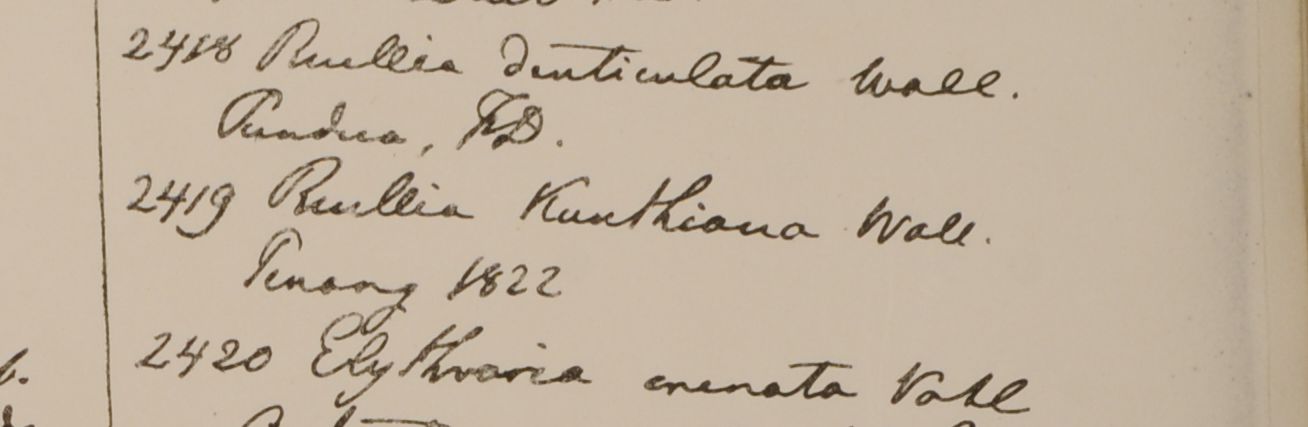 2418 Ruellia denticulata Wall.
Pundua, F.D.
2419 Ruellia Kunthiana Wall.
Penang 1822
2420 Elythraria crenata Vahl